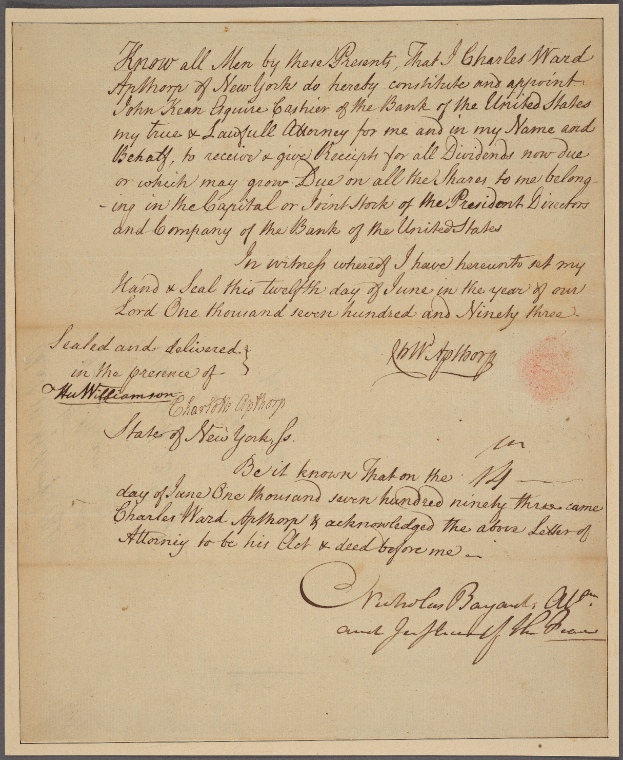 Know all Men by these Presents, That I Charles Ward
Apthorp of New York do hereby constitute and appoint
John Kean Esquire Cashier of the Bank of the United States
my true & Lawfull Attorney for me and in my Name and
Behalf, to receive & give Receipts for all Dividends now due
or which may grow Due on all the Shares to me belong-
-ing in the Capital or Joint Stock of the President Directors
and Company of the Bank of the United States
In witness whereof I have hereunto set my
Hand & Seal this twelfth day of June in the year of our
Lord One thousand seven hundred and Ninety three.
Sealed and delivered }
in the presence of
Chs Wd Apthorp
Hu Williamson
Charlotte Apthorp
State of New York, Ss.
Be it known That on the 14
day of June One thousand seven hundred ninety three came
Charles Ward Apthorp & acknowledged the above Letter of
Attorney to be his Act & deed before me
Nicholas Bayard,
and Justice of the Peace